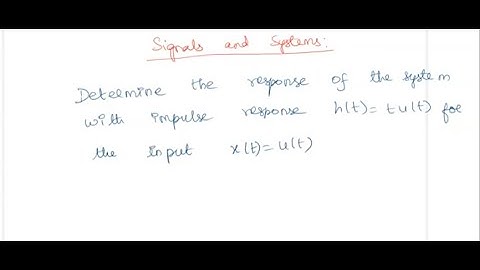 Signals and Systems:
Determine the response of the system
with impulse response h(t) = t u(t) for
the input x(t) = u(t)